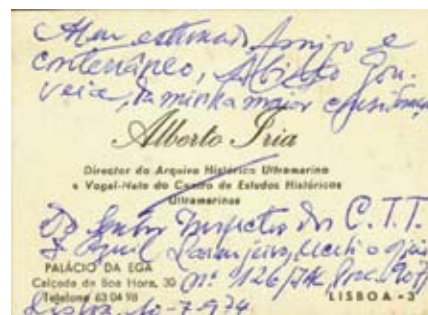 Meu estimado Amigo e
conterrâneo, Alberto Gou-
veia, da minha maior
Alberto Iria
Director do Arquivo Histórico Ultramarino
e Vogal-Nato do Centro de Estudos Históricos
Ultramarinos
Do Senhor Inspector dos C.T.T.
Laranjeiro, recebi o ofício
PALÁCIO DA EGA
Calçada da Boa Hora, 30
nº 126/
Telefone 63 04 98
LISBOA - 3
Lisboa, 10-7-974